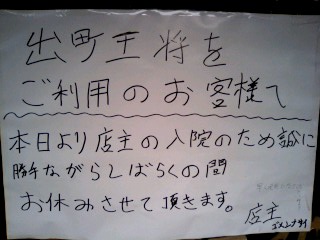 出町王将を
ご利用のお客様て
本日より店主の入院のため誠に
勝手ながらしばらくの間
お休みさせて頂きます。
店主
ゴメンナサイ